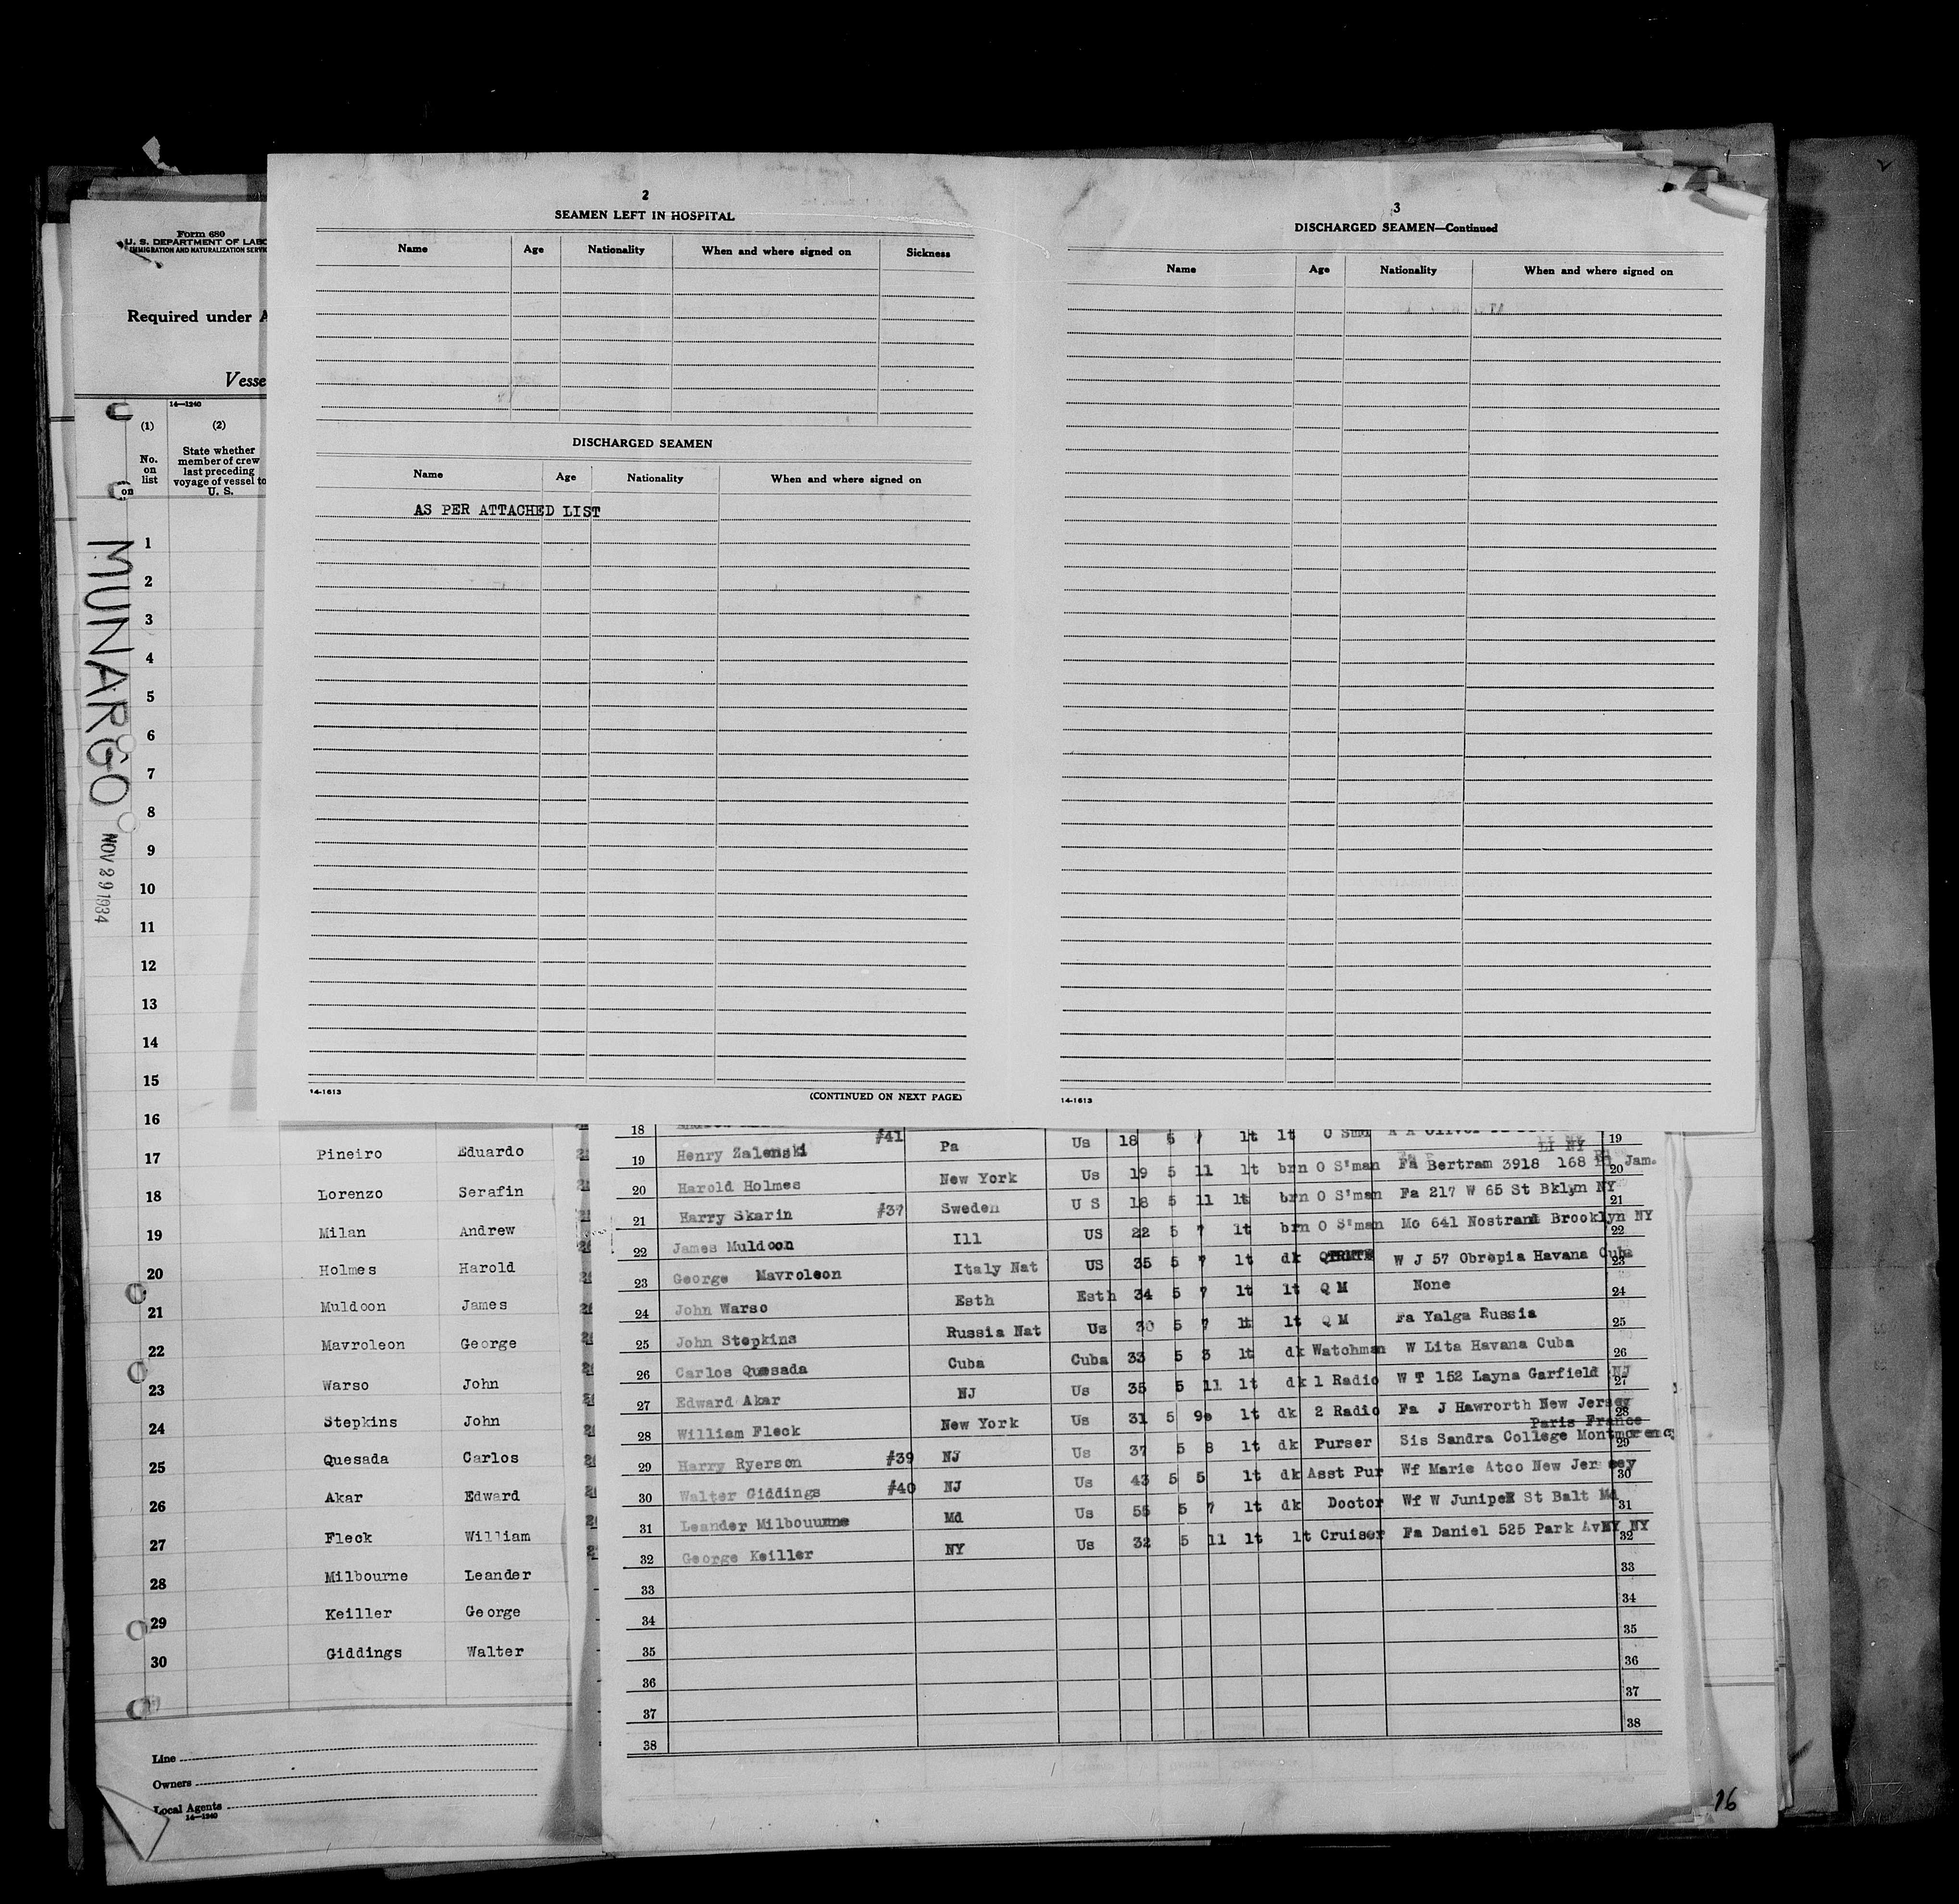 Form 680
U. S. DEPARTMENT OF LABO
IMMIGRATION AND NATURALIZATION SERVIC
Required under A
Vesse
14—1240
(1) (2)
No. on list
State whether member of crew last preceding voyage of vessel to U. S.
on
MUNARGO
NOV 29 1934
1
2
3
4
5
6
7
8
9
10
11
12
13
14
15
16
17 Pineiro Eduardo
18 Lorenzo Serafin
19 Milan Andrew
20 Holmes Harold
21 Muldoon James
22 Mavroleon George
23 Warso John
24 Stepkins John
25 Quesada Carlos
26 Akar Edward
27 Fleck William
28 Milbourne Leander
29 Keiller George
30 Giddings Walter
Line
Owners
Local Agents
14—1240
2
SEAMEN LEFT IN HOSPITAL
Name Age Nationality When and where signed on Sickness
DISCHARGED SEAMEN
Name Age Nationality When and where signed on
AS PER ATTACHED LIST
14-1613
(CONTINUED ON NEXT PAGE)
3
DISCHARGED SEAMEN—Continued
Name Age Nationality When and where signed on
14-1613
18
19 Henry Zalenski #41 Pa Us 18 5 7 lt lt 19
LI NY
20 Harold Holmes New York Us 19 5 11 lt brn O S'man Fa Bertram 3918 168 Jam. 20
21 Harry Skarin #37 Sweden U S 18 5 11 lt brn O S'man Fa 217 W 65 St Bklyn NY 21
22 James Muldoon Ill US 22 5 7 lt brn O S'man Mo 641 Nostrand Brooklyn NY 22
23 George Mavroleon Italy Nat US 35 5 7 lt dk W J 57 Obropia Havana Cuba 23
24 John Warso Esth Esth 34 5 7 lt lt Q M None 24
25 John Stepkins Russia Nat Us 30 5 7 lt lt Q M Fa Yalga Russia 25
26 Carlos Quesada Cuba Cuba 33 5 3 lt dk Watchman W Lita Havana Cuba 26
27 Edward Akar NJ Us 35 5 11 lt dk 1 Radio W T 152 Layna Garfield NJ 27
28 William Fleck New York Us 31 5 9 lt dk 2 Radio Fa J Hawrorth New Jersey 28
Paris France
29 Harry Ryerson #39 NJ Us 37 5 8 lt dk Purser Sis Sandra College Montmorency 29
30 Walter Giddings #40 NJ Us 43 5 5 lt dk Asst Pur Wf Marie Atco New Jersey 30
31 Leander Milbouurne Md Us 55 5 7 lt dk Doctor Wf W Juniper St Balt Md 31
32 George Keiller NY Us 32 5 11 lt lt Cruiser Fa Daniel 525 Park Av NY NY 32
33 33
34 34
35 35
36 36
37 37
38 38
16